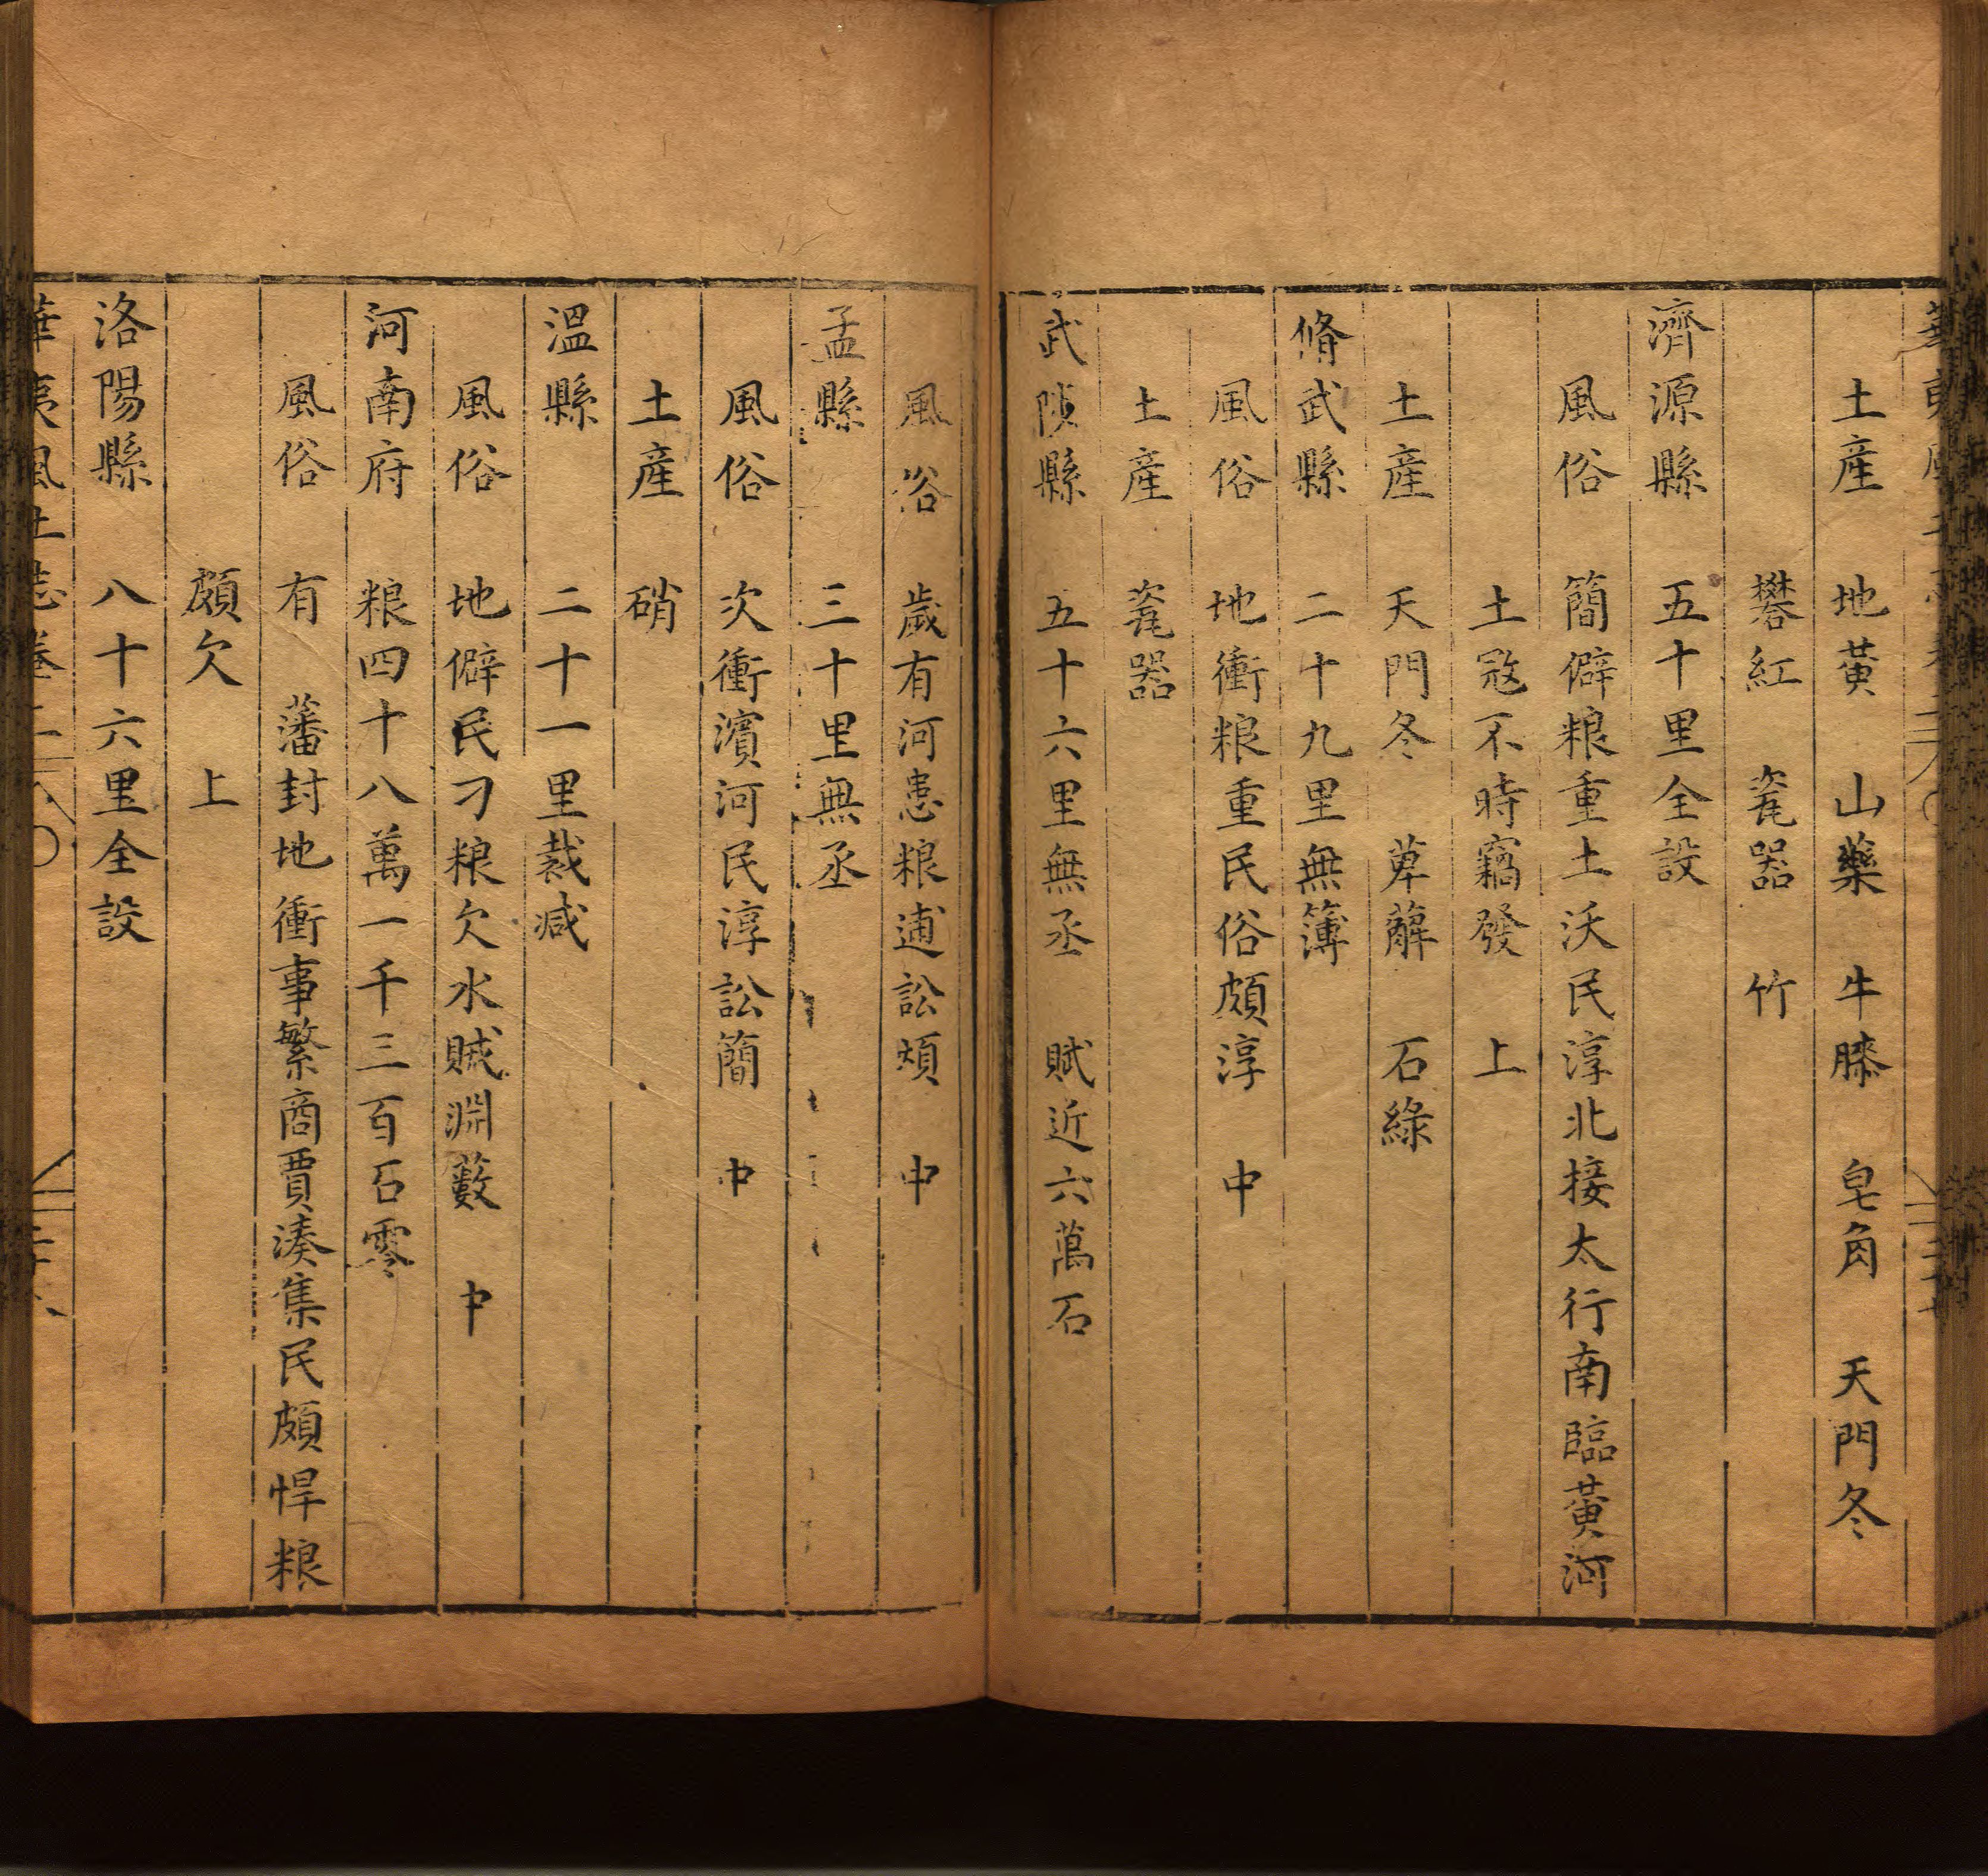 土產　地黃　山藥　牛膝　皂角　天門冬
礬紅　瓷器　竹
濟源縣　五十里全設
風俗　簡僻粮重土沃民淳北接太行南臨黃河
土冦不時竊發　上
土產　天門冬　萆薢　石綠
脩武縣　二十九里無簿
風俗　地衝粮重民俗頗淳　中
土產　瓷器
武陟縣　五十六里無丞　賦近六萬石
風俗　歲有河患粮逋訟煩　中
孟縣　三十里無丞
風俗　次衝濱河民淳訟簡　中
土產　硝
溫縣　二十一里裁减
風俗　地僻民刁粮欠水賊淵藪　中
河南府　粮四十八萬一千三百石零
風俗　有　藩封地衝事繁商賈湊集民頗悍粮
頗欠　上
洛陽縣　八十六里全設
華夷風土志卷二